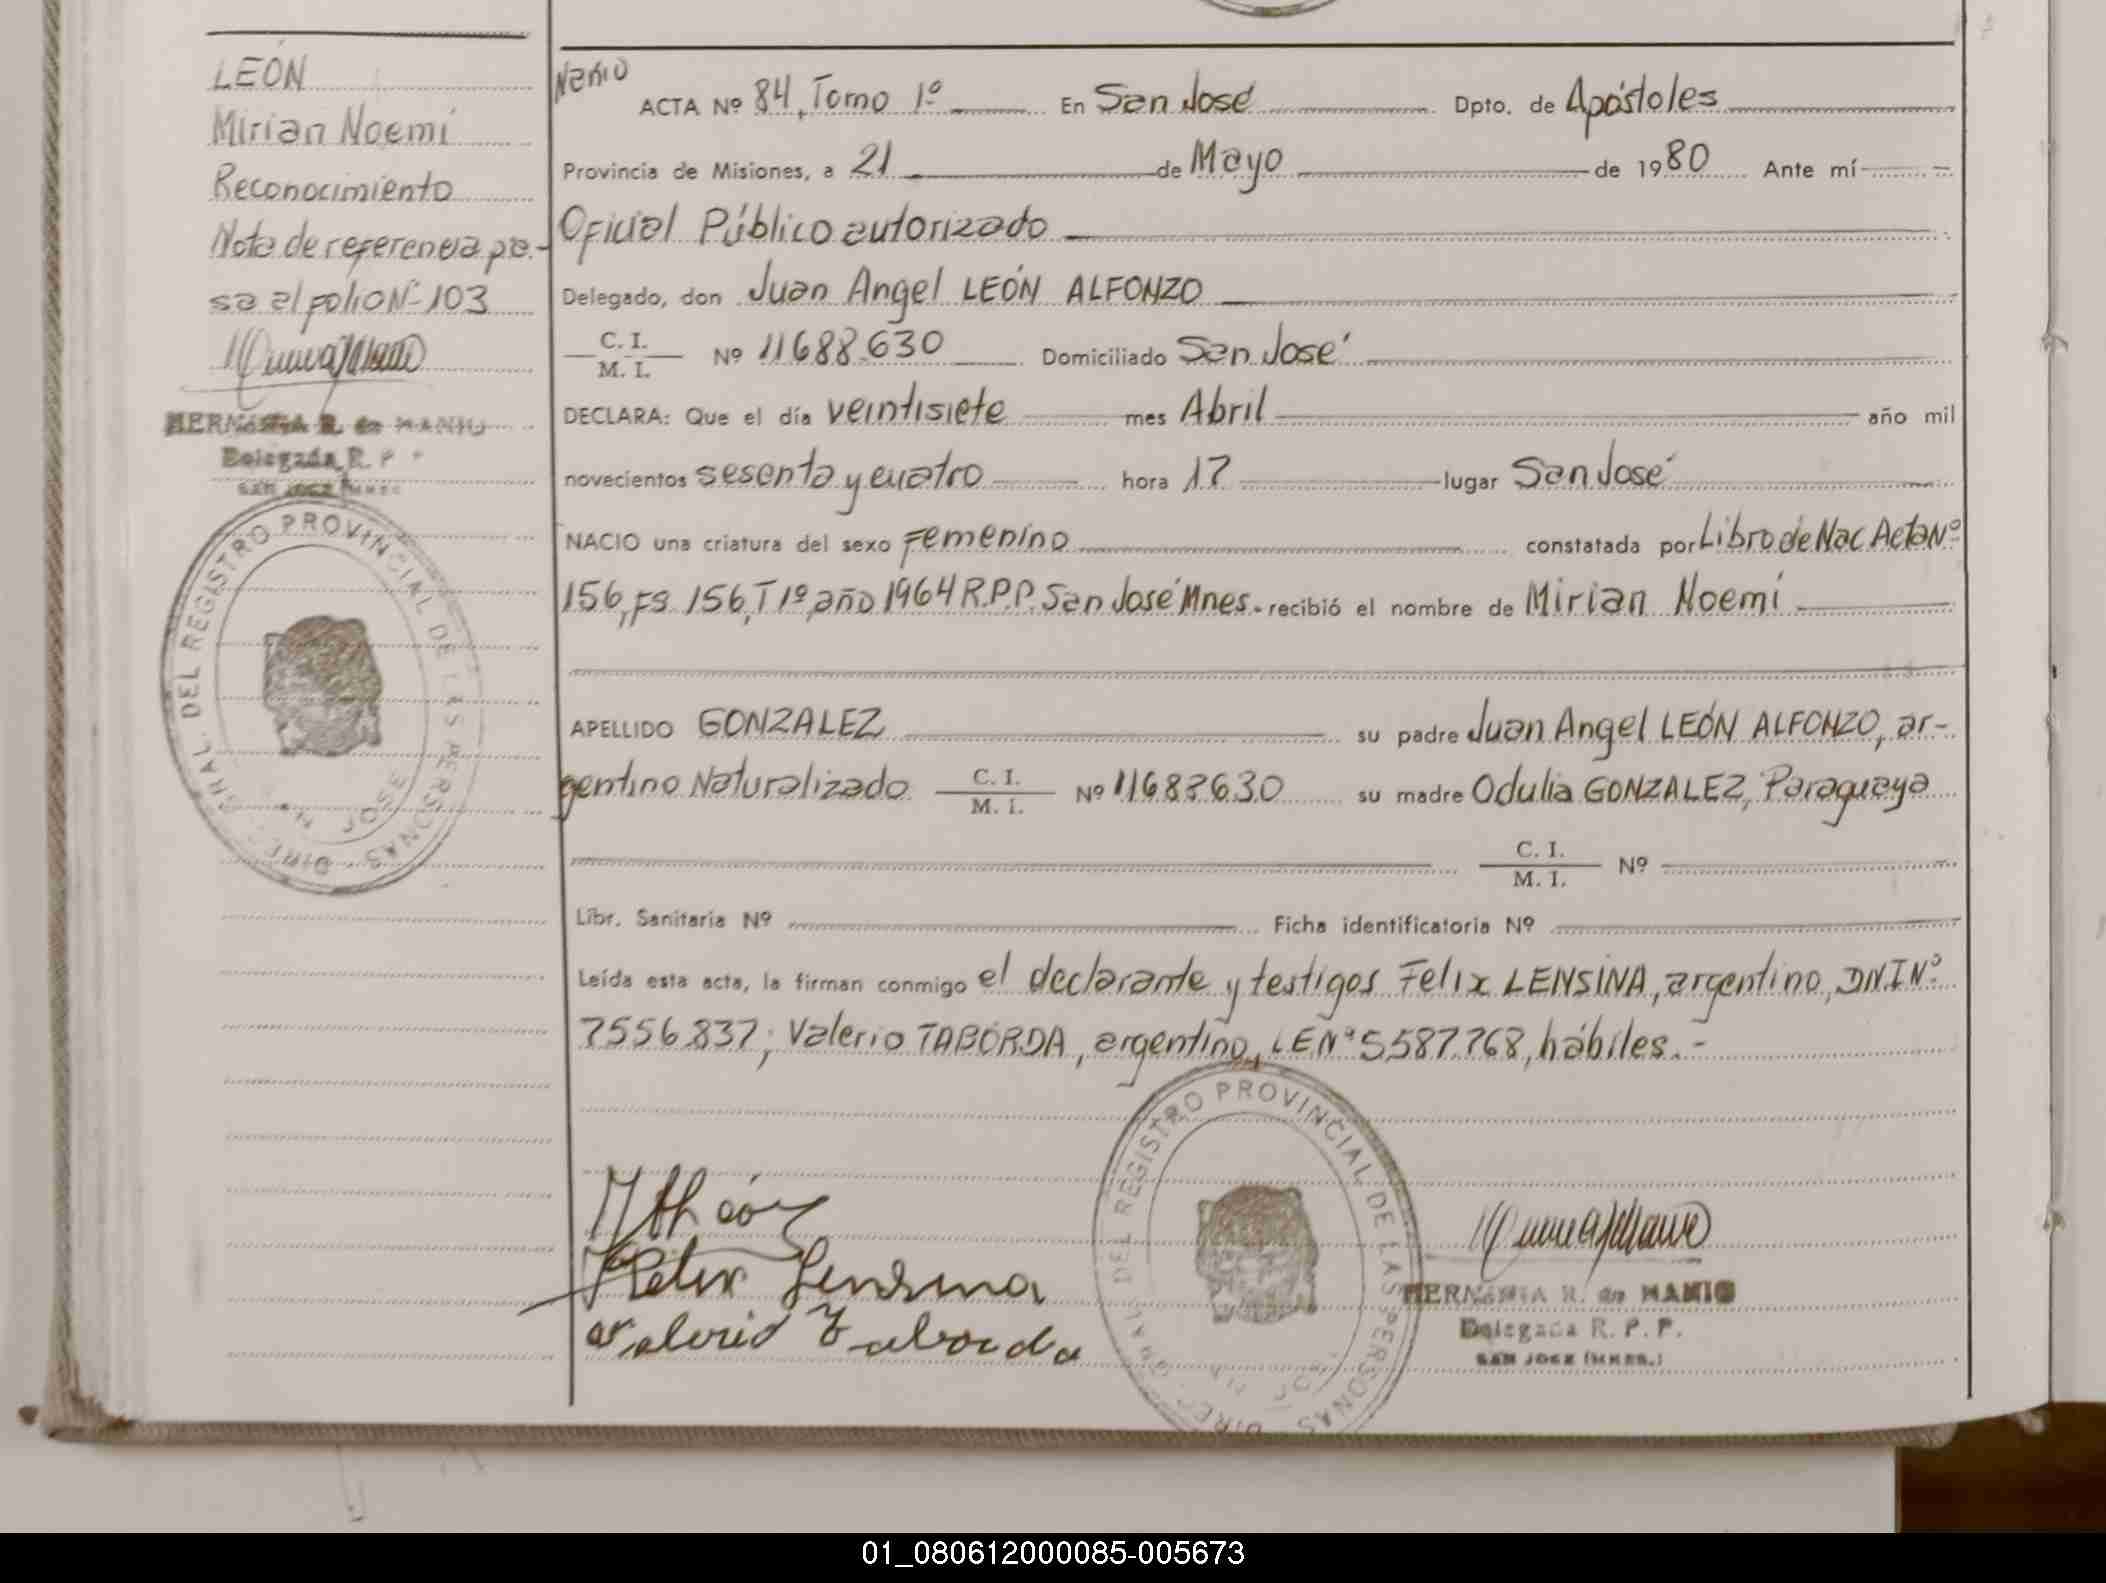 LEÓN
Mirian Noemi
Reconocimiento
Nota de referencia pa-
sa al folio Nº 103
HERNENIA R. de MANIO
Delegada R. P. P.
SAN JOSE (MNES.)
DIREC. GRAL. DEL REGISTRO PROVINCIAL DE LAS PERSONAS
SAN JOSE
ACTA Nº 84, Tomo 1º En San José Dpto. de Apóstoles
Provincia de Misiones, a 21 de Mayo de 1980 Ante mí
Oficial Público autorizado
Delegado, don Juan Angel LEÓN ALFONZO
C. I.
M. I. Nº 11688.630 Domiciliado San José
DECLARA: Que el día veintisiete mes Abril año mil
novecientos sesenta y cuatro hora 17 lugar San José
NACIO una criatura del sexo femenino constatada por Libro de Nac Acta Nº
156, Fs 156, T 1º, año 1964 R.P.P. San José Mnes.- recibió el nombre de Mirian Noemi
APELLIDO GONZALEZ su padre Juan Angel LEÓN ALFONZO, ar-
gentino Naturalizado C. I.
M. I. Nº 11688630 su madre Odulia GONZALEZ, Paraguaya
C. I.
M. I. Nº
Libr. Sanitaria Nº Ficha identificatoria Nº
Leída esta acta, la firman conmigo el declarante y testigos Felix LENSINA, argentino, DNI Nº
7556837; Valerio TABORDA, argentino, LE Nº 5.587.768, hábiles.-
Felix Lensina
Valerio Taborda
DIREC. GRAL. DEL REGISTRO PROVINCIAL DE LAS PERSONAS
HERNENIA R. de MANIO
Delegada R. P. P.
SAN JOSE (MNES.)
01_080612000085-005673